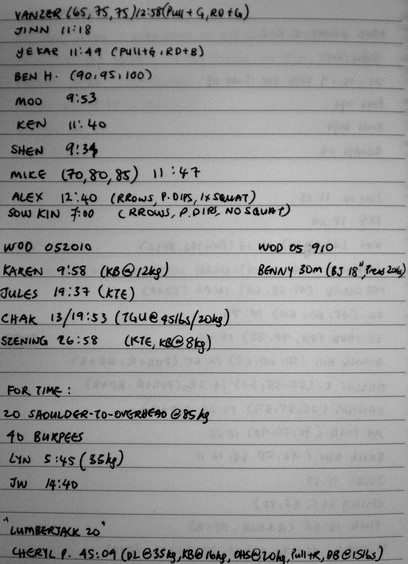 VANZER (65, 75, 75) 12:58 (Pull+G, RD+G)
JINN 11:18
YEKAR 11:49 (Pull+G, RD+B)
BEN H. (90, 95, 100)
MOO 9:53
KEN 11:40
SHEN 9:34
MIKE (70, 80, 85) 11:47
ALEX 12:40 (RROWS, P.DIPS, 1xSQUAT)
SOW KIN 7:00 (RROWS, P.DIPS, NO SQUAT)
WOD 052010 WOD 05 910
KAREN 9:58 (KB@12kg) BENNY 30m (BJ 18" Press 20kg)
JULES 19:37 (KTE)
CHAK 13/19:53 (TGU@45lbs/20kg)
SZENING 26:58 (KTE, KB@8kg)
FOR TIME:
20 SHOULDER-TO-OVERHEAD @85kg
40 BURPEES
LYN 5:45 (35kg)
JW 14:40
"LUMBERJACK 20"
CHERYL P. 45:09 (DL@35kg, KB@16kg, OHS@20kg, Pull+R, DB@15lbs)